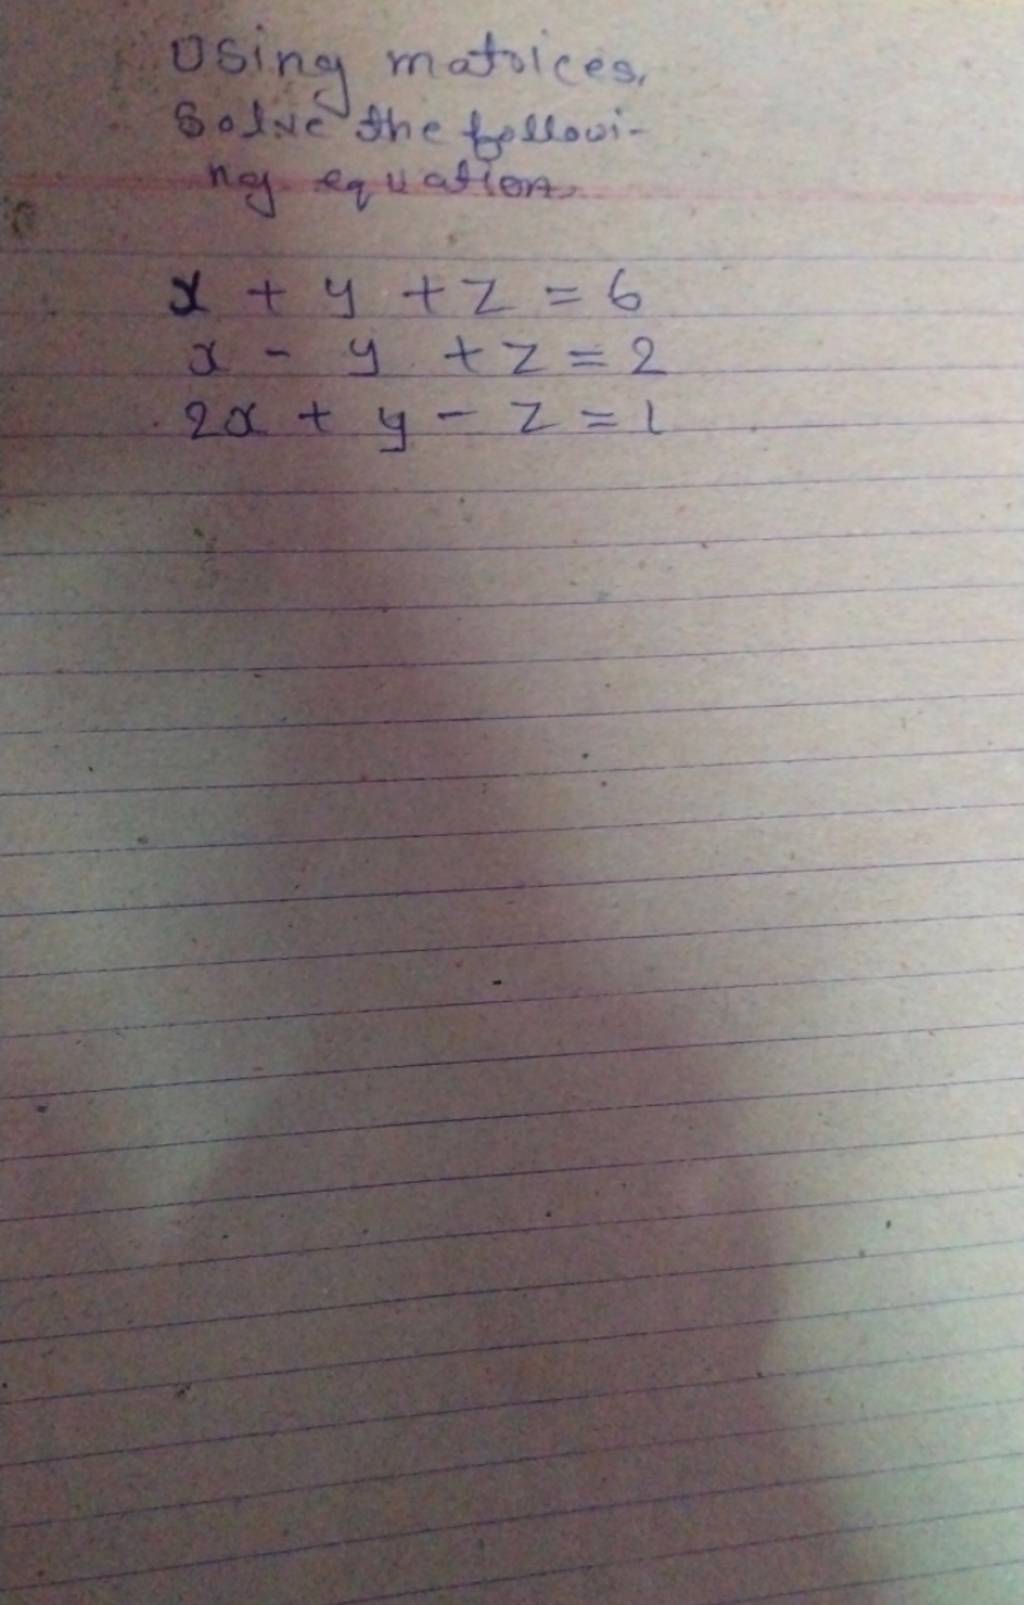 Using matrices,
Solve the followi-
ng equation.
x + y + z = 6
x - y + z = 2
2x + y - z = 1